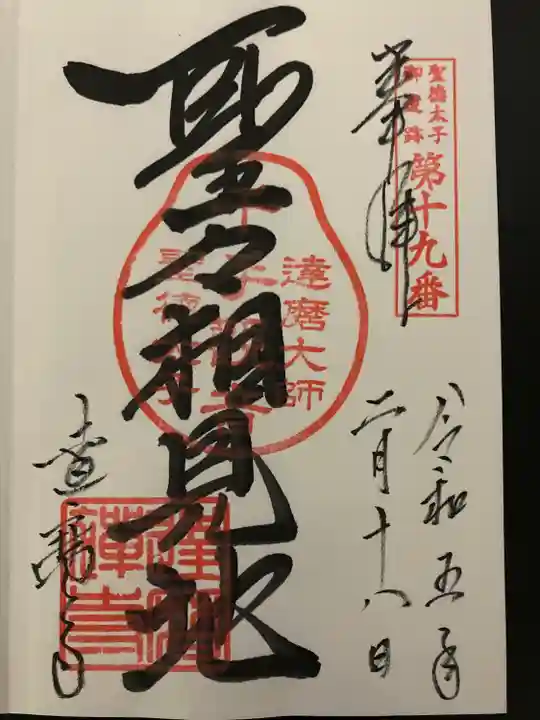 聖徳太子
御遺跡
第十九番
奉拝
令和五年
二月十八日
聖々相見地
達磨大師
聖徳太子
達磨寺
達磨
禅寺